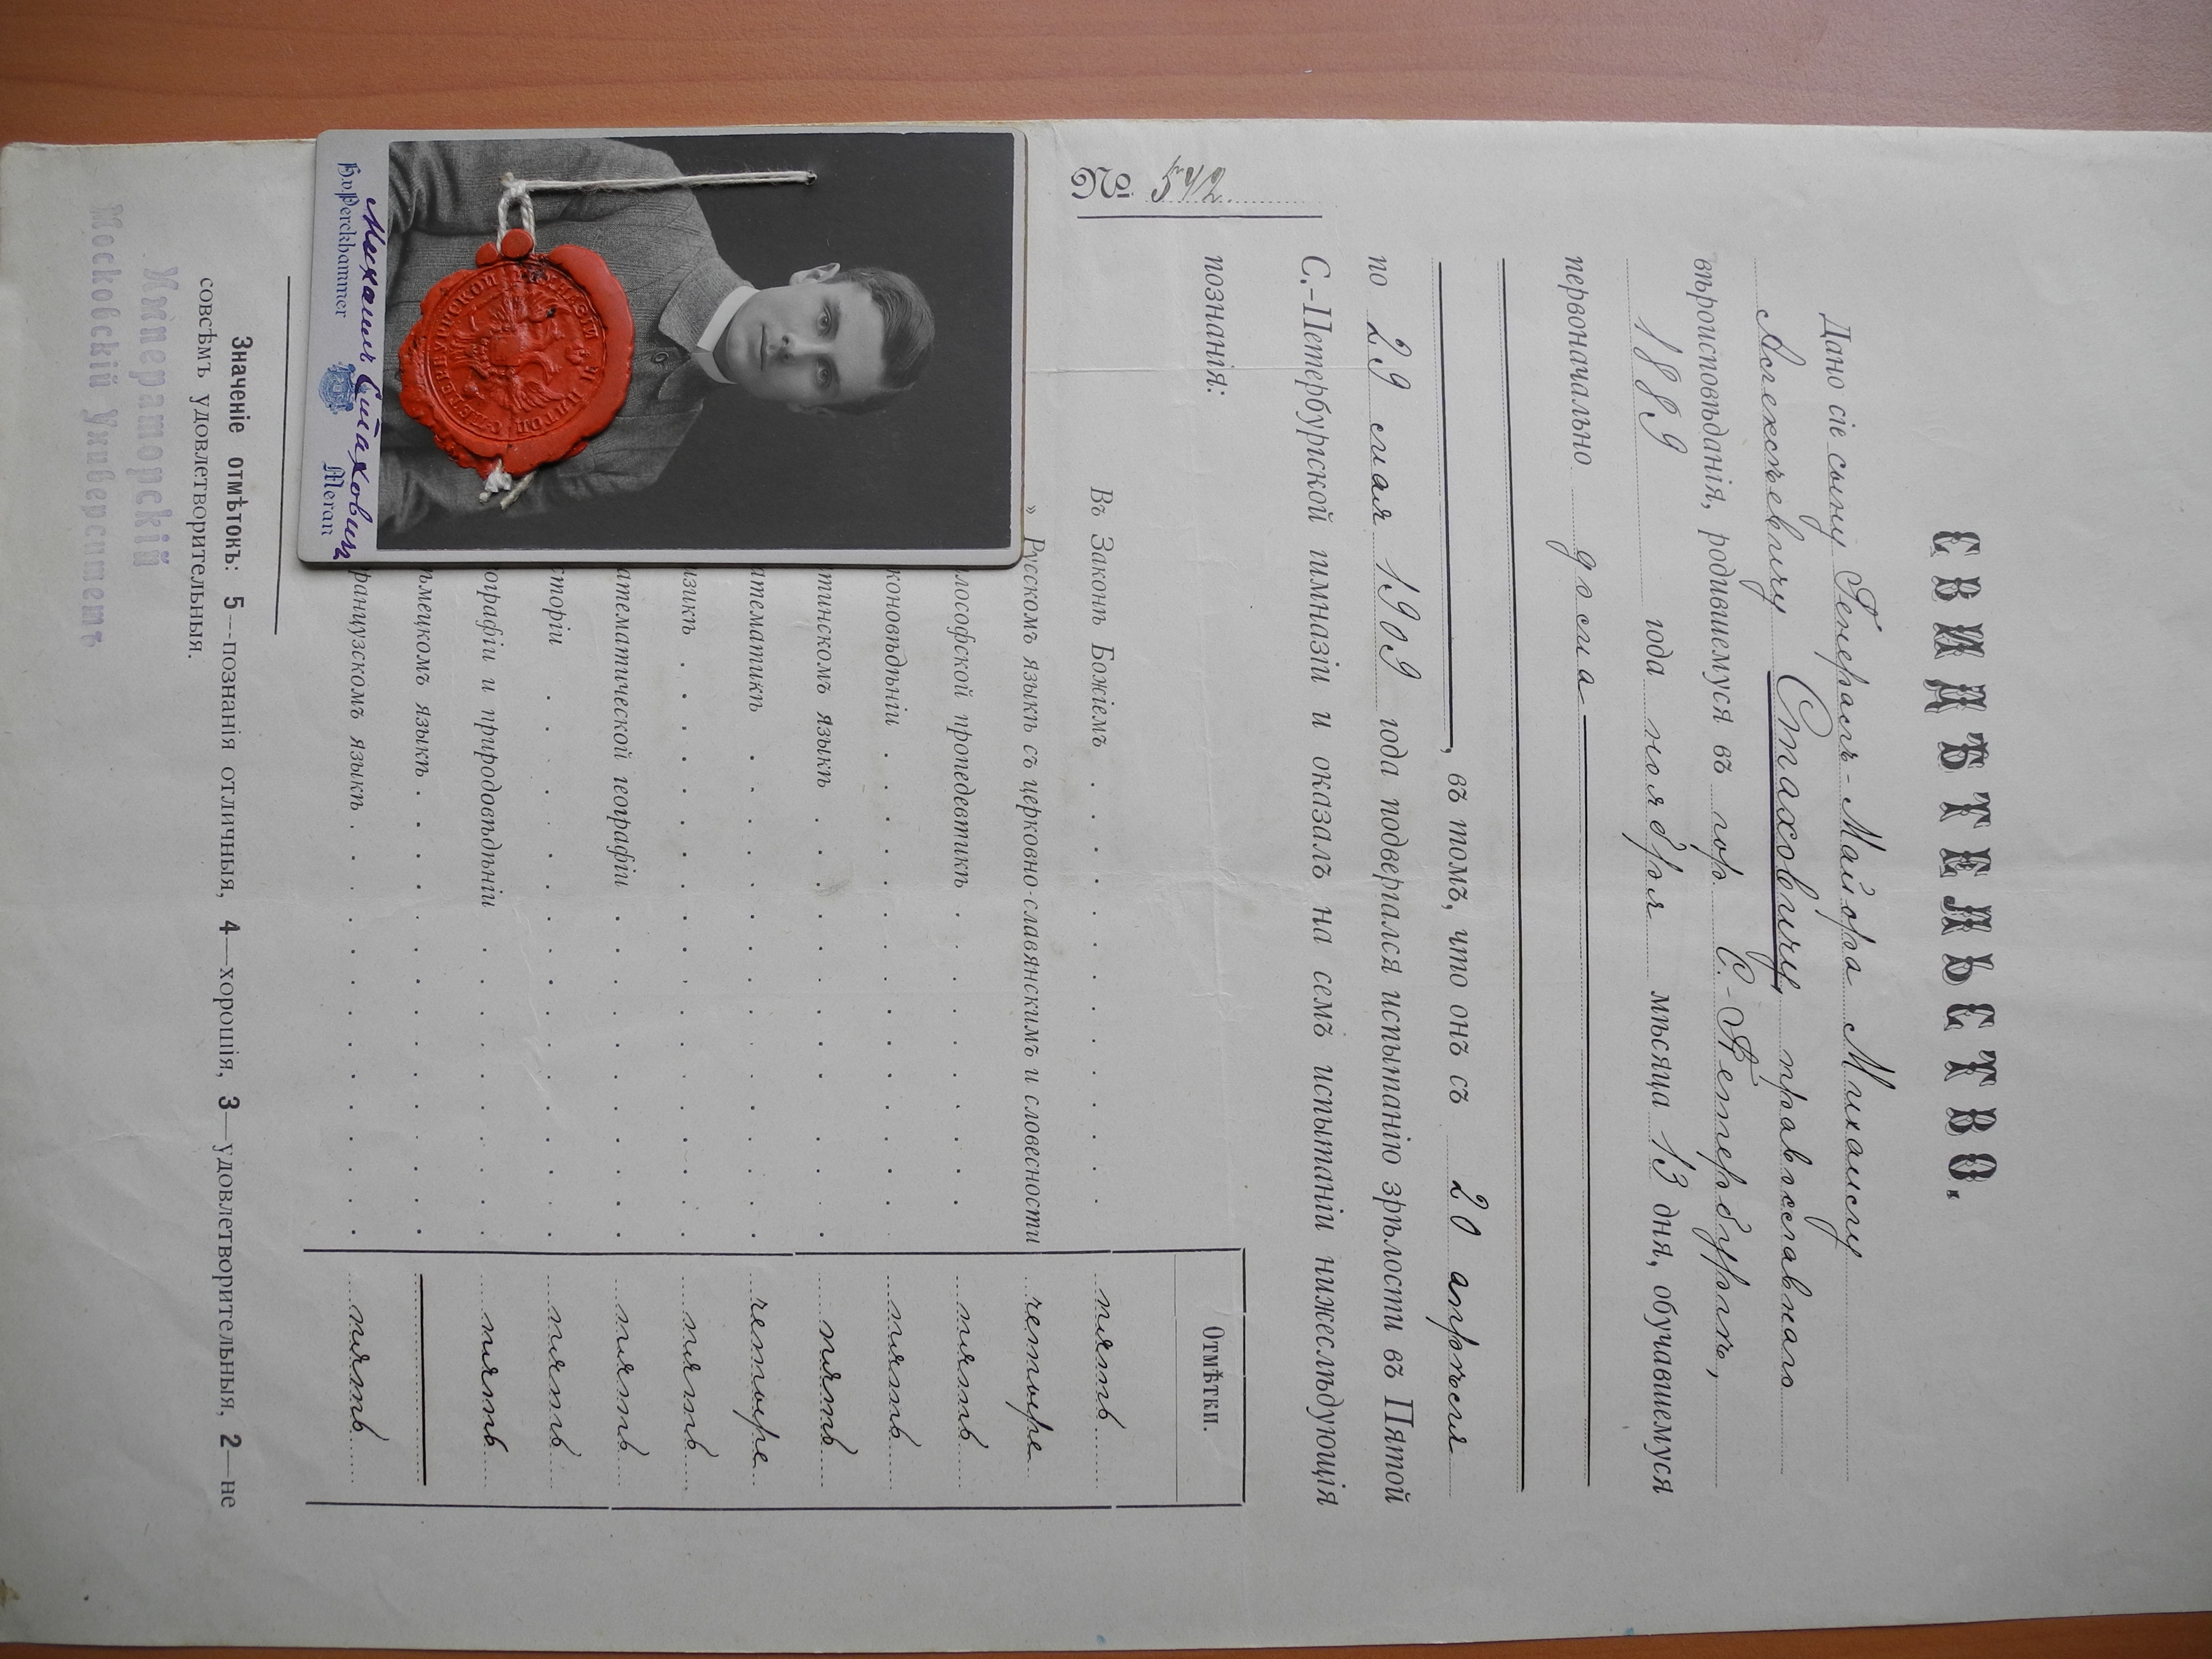 СВИДѢТЕЛЬСТВО.
Дано сіе сыну Генералъ-Майора Михаилу
Алексѣевичу Стаховичу, православнаго
вѣроисповѣданія, родившемуся въ гор. С.-Петербургѣ,
1889 года ноября мѣсяца 13 дня, обучавшемуся
первоначально дома
, въ томъ, что онъ съ 20 апрѣля
по 29 мая 1909 года подвергался испытанію зрѣлости въ Пятой
С.-Петербургской гимназіи и оказалъ на семъ испытаніи нижеслѣдующія
познанія:
Отмѣтки.
№
Въ Законѣ Божіемъ . . . . . . . . . . . . . пять
» Русскомъ языкѣ съ церковно-славянскимъ и словесности четыре
лософской пропедевтикѣ . . . . . . . . . . пять
коновѣдѣніи . . . . . . . . . . . . . . . пять
тинскомъ языкѣ . . . . . . . . . . . . пять
атематикѣ . . . . . . . . . . . . . . . четыре
изикѣ . . . . . . . . . . . . . . . . . . пять
атематической географіи . . . . . . . . . . пять
сторіи . . . . . . . . . . . . . . . . . пять
ографіи и природовѣдѣніи . . . . . . . . . пять
ѣмецкомъ языкѣ . . . . . . . . . . . . . .
ранцузскомъ языкѣ . . . . . . . . . . . . . пять
Михаилъ Стаховичъ
H.v.Perckhammer Meran
Значеніе отмѣтокъ: 5—познанія отличныя, 4—хорошія, 3—удовлетворительныя, 2—не
совсѣмъ удовлетворительныя.
Императорскій
Московскій Университетъ